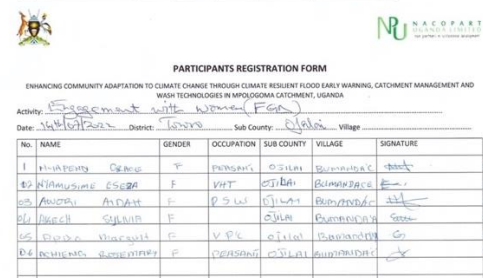 NACOPART
UGANDA LIMITED
PARTICIPANTS REGISTRATION FORM
ENHANCING COMMUNITY ADAPTATION TO CLIMATE CHANGE THROUGH CLIMATE RESILIENT FLOOD EARLY WARNING, CATCHMENT MANAGEMENT AND
WASH TECHNOLOGIES IN MPOLOGOMA CATCHMENT, UGANDA
Activity: Engagement with women (FGD)
Date: 14th/07/2022 District: Tororo Sub County: Ojilai Village
No. NAME GENDER OCCUPATION SUB COUNTY VILLAGE SIGNATURE
1 GRACE F PEASANT OJILAI BUMANDA'C
02 NYAMUSIME ESEZA F VHT OJILAI BUMANDACE
03 AWORI AIDAH F PSW OJILAI BUMANDA'C
04 AKECH SYLVIA F OJILAI BUMANDA'A
05 Margret F VPC OJILAI Bumanda'a
06 ACHIENG ROSEMARY F PEASANT OJILAI BUMANDA'C